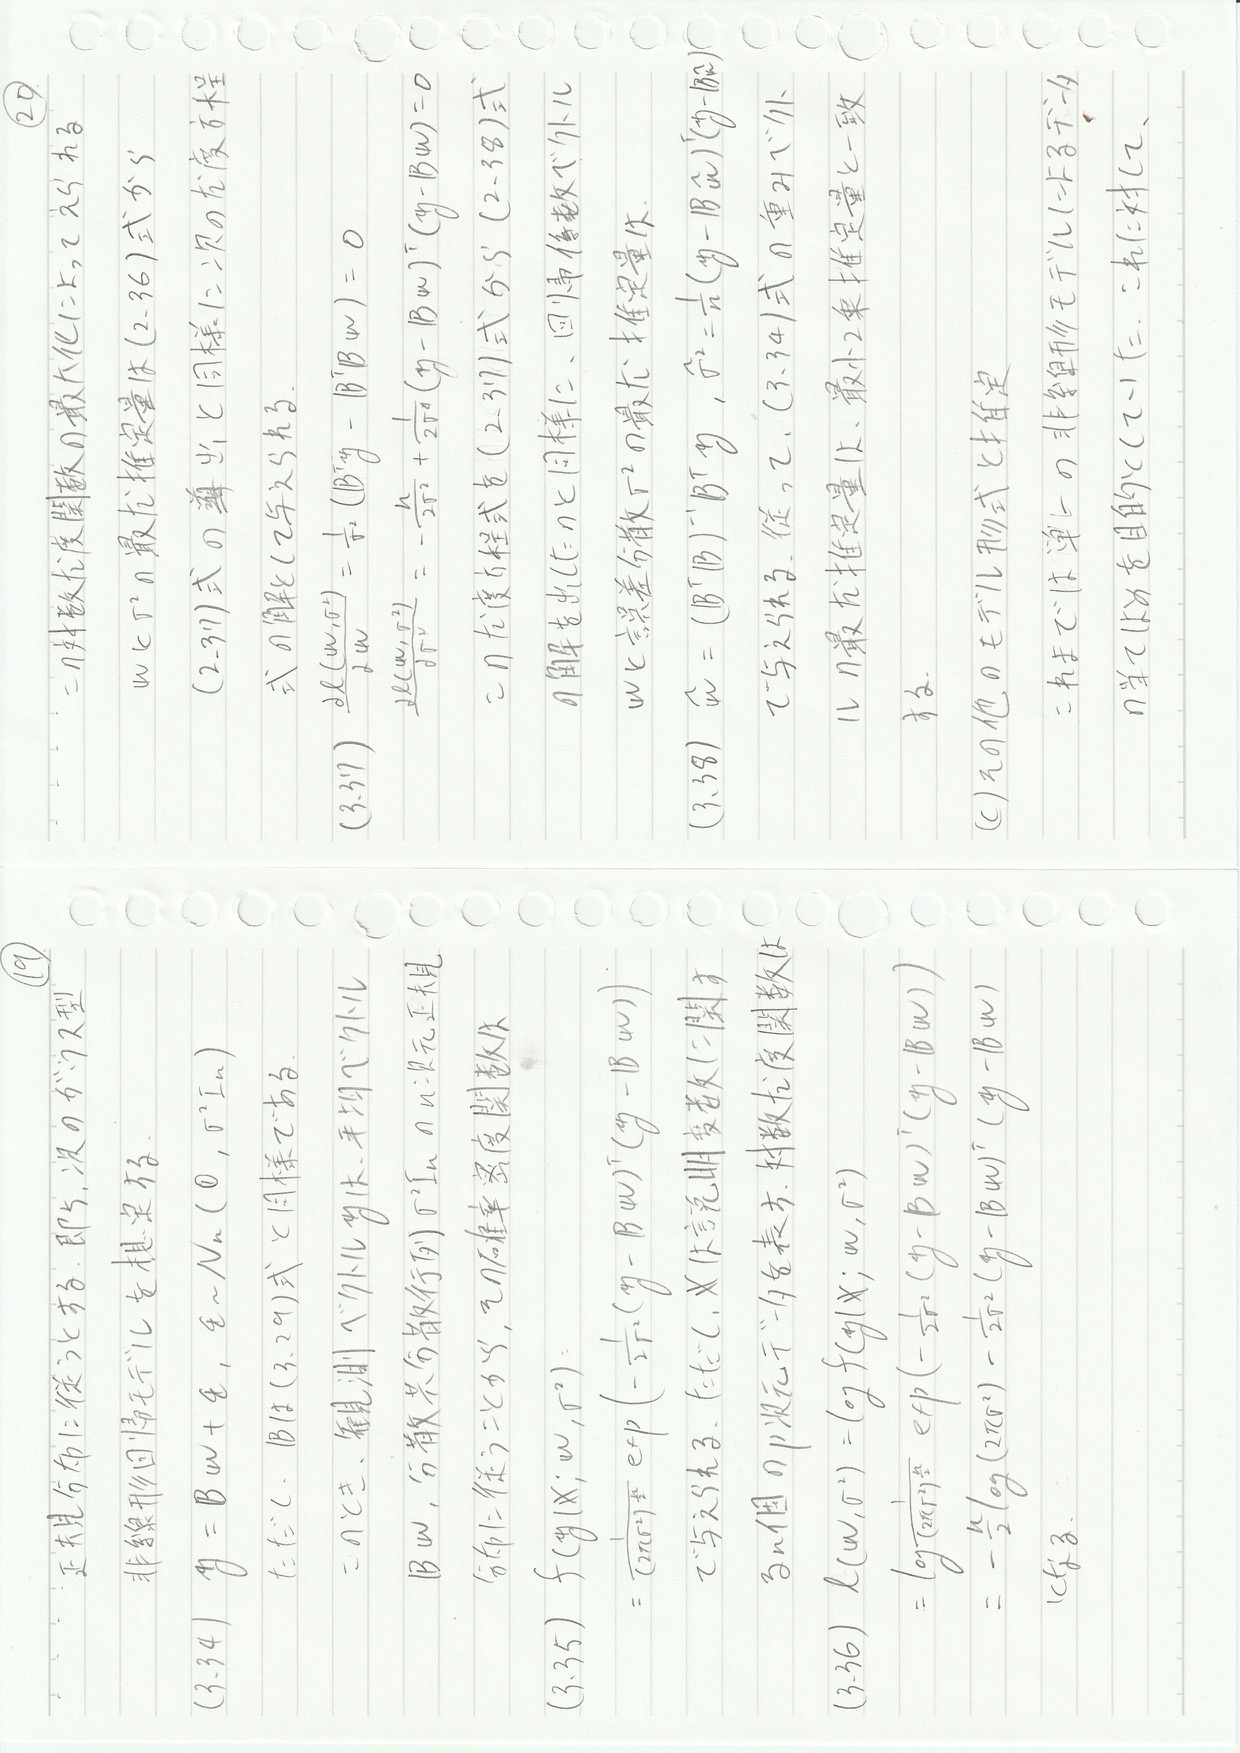 ⑲
正規分布に従うとする. 即ち, 次のガウス型
非線形回帰モデルを想定する.
(3.34) y = Bw + ε, ε ~ Nn(0, σ²In)
ただし, Bは(3.29)式と同様である.
このとき、観測ベクトルyは、平均ベクトル
Bw, 分散共分散行列σ²Inのn次元正規
分布に従うことから, その確率密度関数は
(3.35) f(y|X; w, σ²)
= 1/(2πσ²)^(n/2) exp(-1/2σ² (y - Bw)ᵀ(y - Bw))
で与えられる. ただし, Xは説明変数に関す
るn個のp次元データを表す. 対数尤度関数は
(3.36) l(w, σ²) = log f(y|X; w, σ²)
= log 1/(2πσ²)^(n/2) exp(-1/2σ² (y - Bw)ᵀ(y - Bw))
= -n/2 log(2πσ²) - 1/2σ² (y - Bw)ᵀ(y - Bw)
になる.
⑳
この対数尤度関数の最大化によってえられる
wとσ²の最尤推定量は(2.36)式から
(2.37)式の導出と同様に次の尤度方程
式の解として与えられる.
(3.37) ∂l(w, σ²)/∂w = 1/σ² (Bᵀy - BᵀBw) = 0
∂l(w, σ²)/∂σ² = -n/2σ² + 1/2σ⁴ (y - Bw)ᵀ(y - Bw) = 0
この尤度方程式を(2.37)式から(2.38)式
の解を出したのと同様に、回帰係数ベクトル
wと誤差分散σ²の最尤推定量は.
(3.38) ŵ = (BᵀB)⁻¹Bᵀy, σ̂² = 1/n (y - Bŵ)ᵀ(y - Bŵ)
で与えられる. 従って, (3.34)式の重みベクト
ルの最尤推定量は、最小2乗推定量と一致
する.
(c) その他のモデル形式と推定
これまでは単一の非線形モデルによるデータ
の当てはめを目的としていた. これに対して、